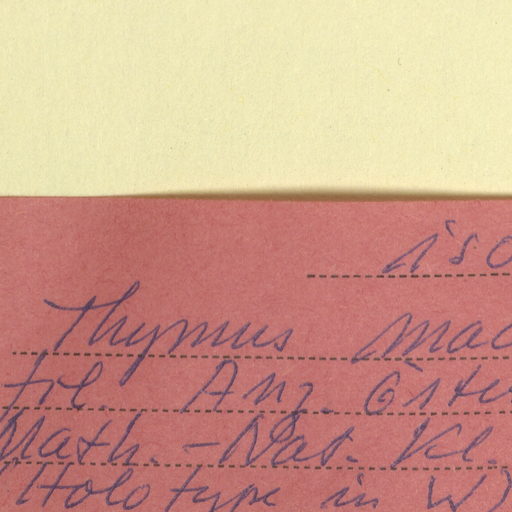 iso
Thymus mac
fil. Anz. Öster
Math. - Nat. Kl.
Holotype in W